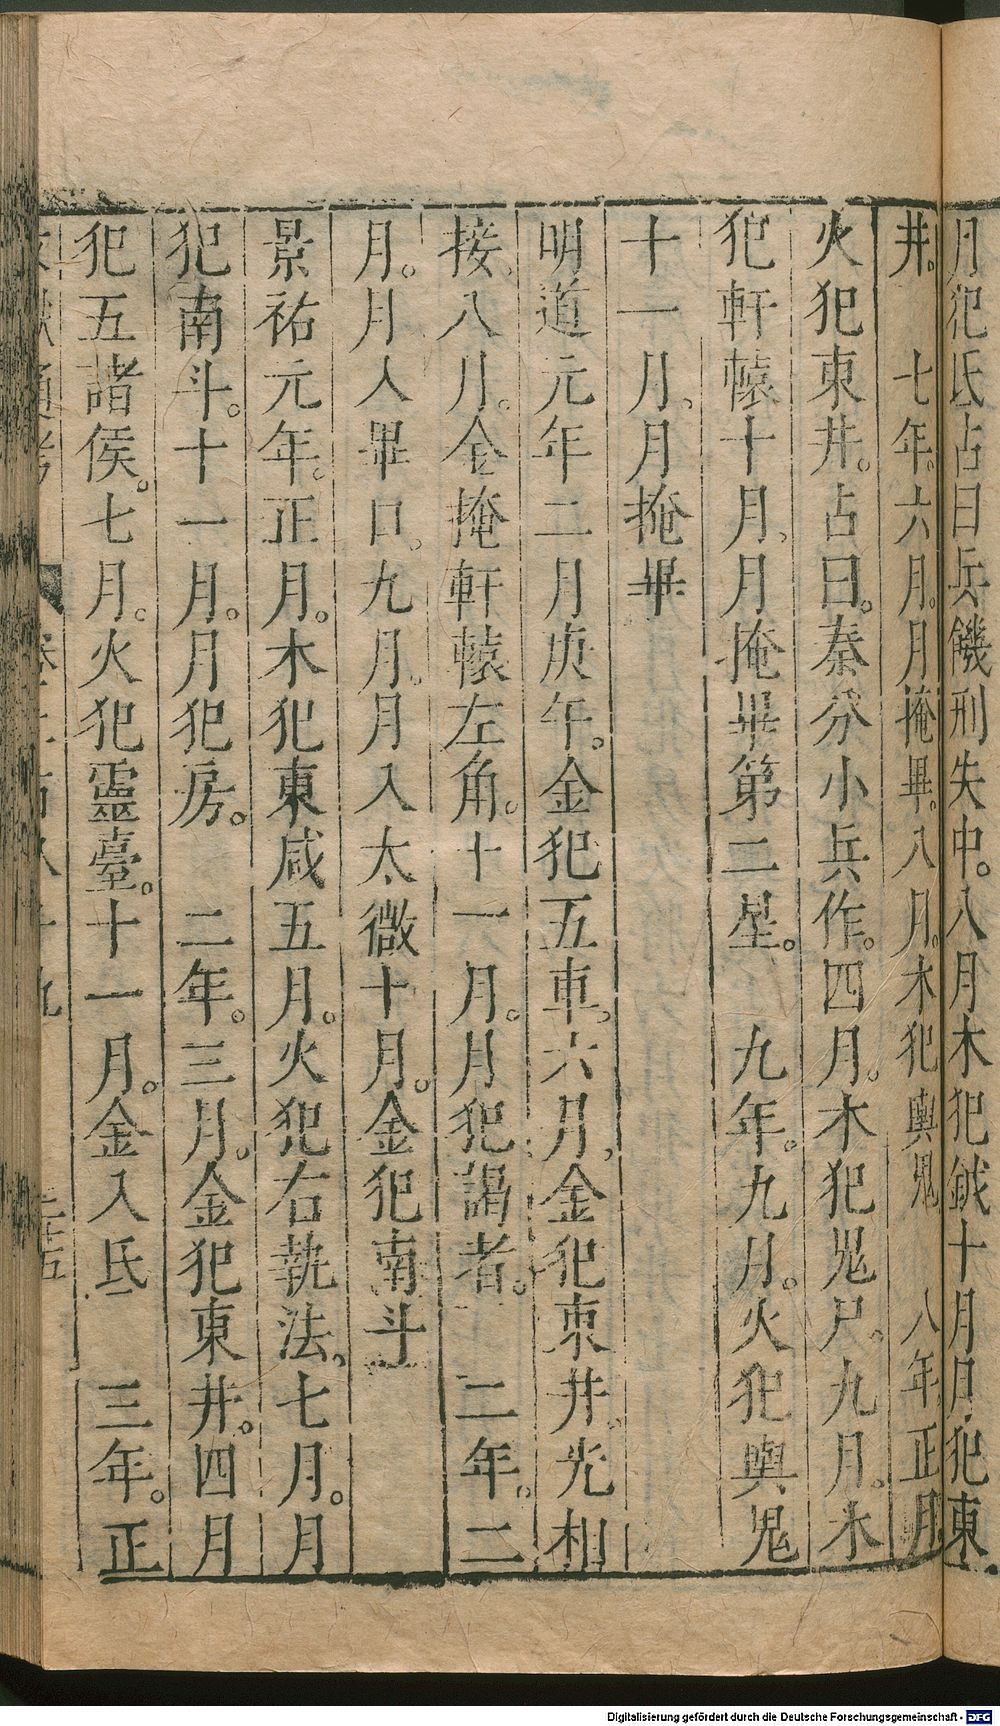 月犯氐占曰兵饑刑失中。八月木犯鉞十月月犯東
井。　七年。六月。月掩畢。八月。木犯輿鬼　八年。正月
火犯東井。占曰。秦分小兵作。四月。木犯鬼尸。九月。木
犯軒轅十月、月掩畢第二星。　九年。九月。火犯輿鬼
十一月、月掩畢
明道元年二月庚午。金犯五車。六月、金犯東井。光相
接、八月。金掩軒轅左角。十一月。月犯謁者。　二年。二
月。月入畢口。九月。月入太微十月。金犯南斗
景祐元年。正月。木犯東咸五月。火犯右執法、七月。月
犯南斗。十一月。月犯房。　二年。三月。金犯東井。四月
犯五諸侯。七月。火犯靈臺。十一月。金入氐　三年。正
Digitalisierung gefördert durch die Deutsche Forschungsgemeinschaft - DFG